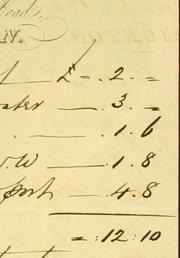 £ = . 2 . =
ater — 3 . =
. — . 1 . 6
. W — . 1 . 8
port — 4 . 8
= : 12 : 10